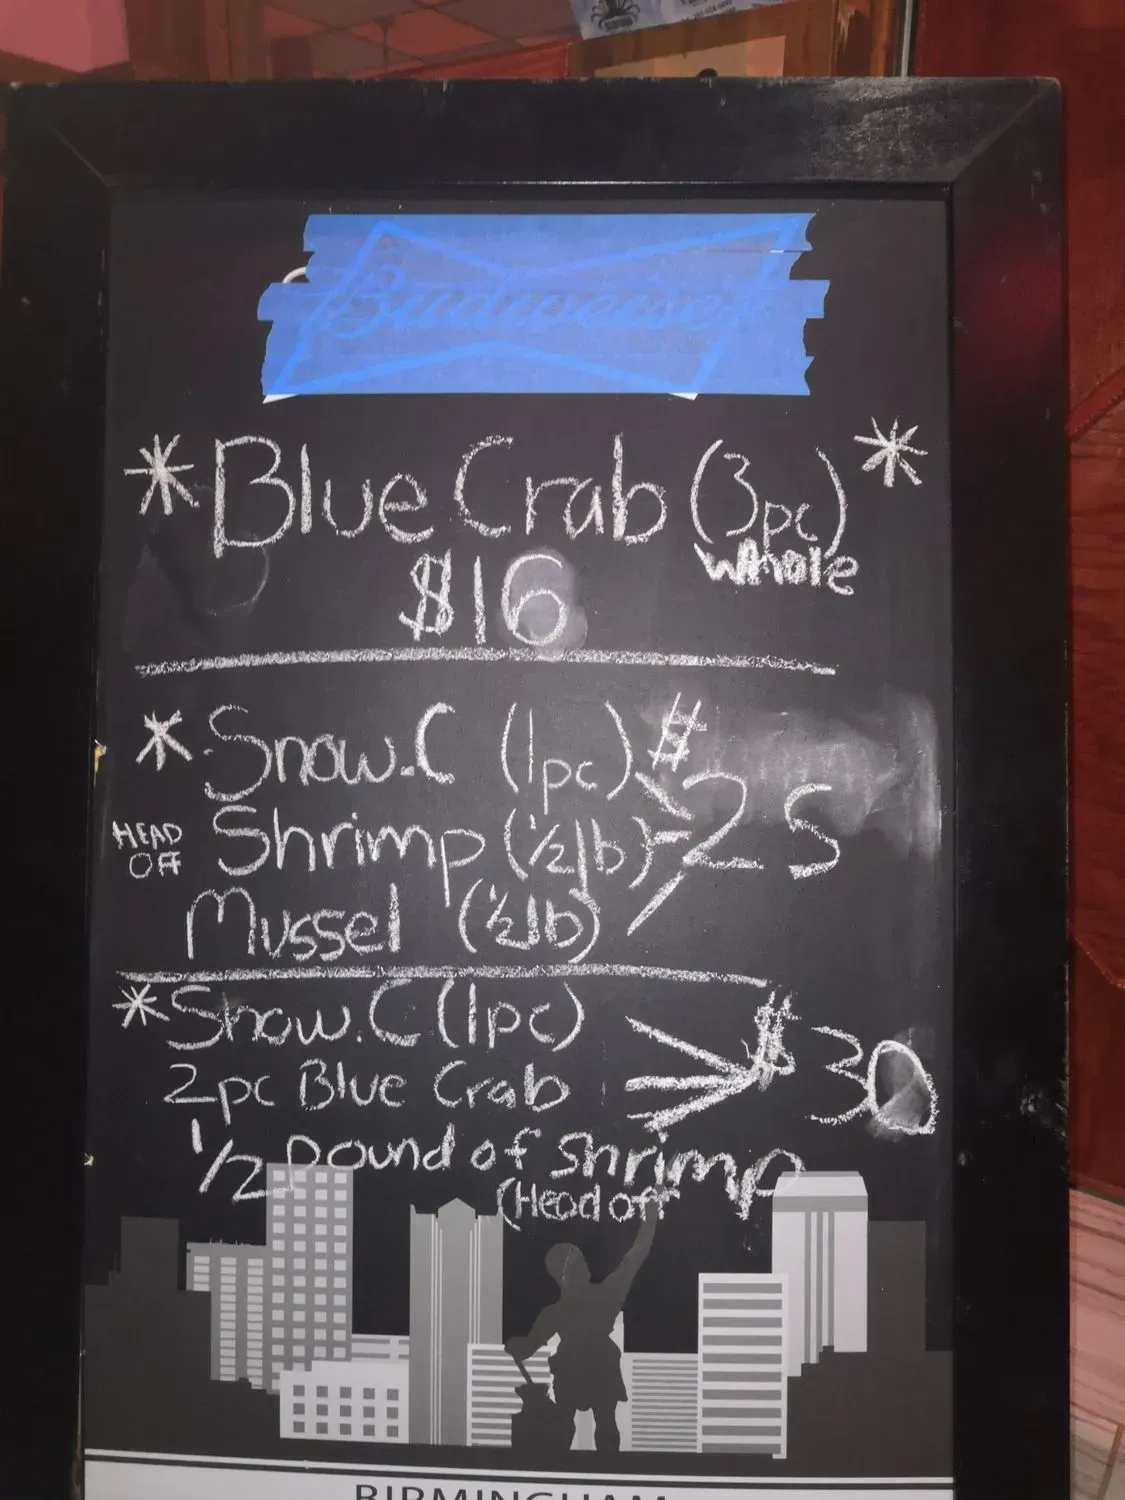 Budweiser
*Blue Crab (3pc)*
whole
$16
*Snow.C (1pc) $
HEAD OFF Shrimp (1/2lb) 25
Mussel (1/2lb)
*Snow.C (1pc) $30
2pc Blue Crab
1/2 pound of Shrimp
(Head off
BIRMINGHAM